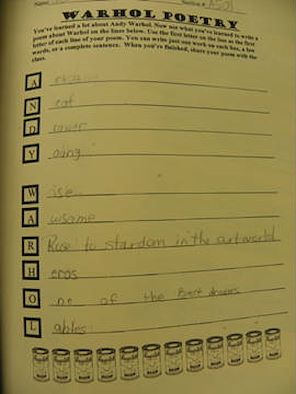 Name
WARHOL POETRY
You've learned a lot about Andy Warhol. Now use what you've learned to write a
poem about Warhol on the lines below. Use the first letter on the box as the first
letter of each line of your poem. You can write just one work on each box, a few
words, or a complete sentence. When you're finished, share your poem with the
class.
A
N eat
D
Y oung
W ise
A wsome
R Rise to stardom in the art world
H eros
O ne of the Best
L